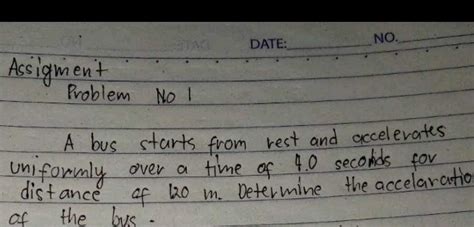 DATE: NO.
Assigment
Problem No 1
A bus starts from rest and accelerates
uniformly over a time of 4.0 seconds for
distance of 120 m. Determine the accelaratio
of the bus.